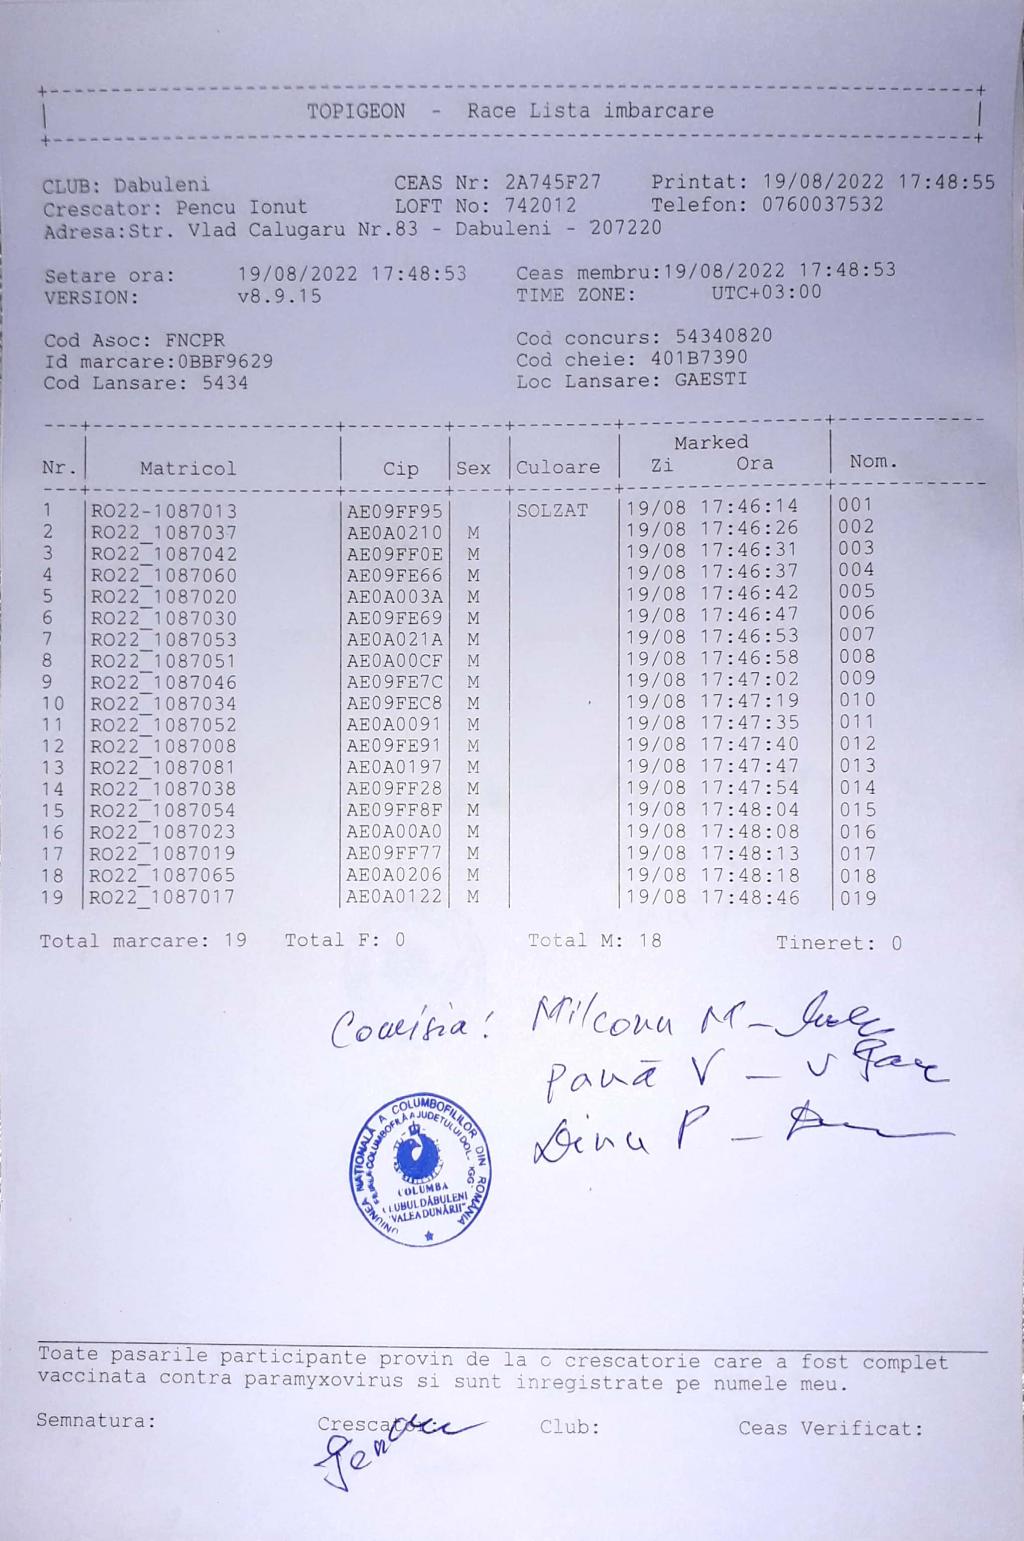 TOPIGEON - Race Lista imbarcare
CLUB: Dabuleni CEAS Nr: 2A745F27 Printat: 19/08/2022 17:48:55
Crescator: Pencu Ionut LOFT No: 742012 Telefon: 0760037532
Adresa:Str. Vlad Calugaru Nr.83 - Dabuleni - 207220
Setare ora: 19/08/2022 17:48:53 Ceas membru:19/08/2022 17:48:53
VERSION: v8.9.15 TIME ZONE: UTC+03:00
Cod Asoc: FNCPR Cod concurs: 54340820
Id marcare:0BBF9629 Cod cheie: 401B7390
Cod Lansare: 5434 Loc Lansare: GAESTI
Marked
Nr. Matricol Cip Sex Culoare Zi Ora Nom.
1 RO22-1087013 AE09FF95 SOLZAT 19/08 17:46:14 001
2 RO22_1087037 AE0A0210 M 19/08 17:46:26 002
3 RO22_1087042 AE09FF0E M 19/08 17:46:31 003
4 RO22_1087060 AE09FE66 M 19/08 17:46:37 004
5 RO22_1087020 AE0A003A M 19/08 17:46:42 005
6 RO22_1087030 AE09FE69 M 19/08 17:46:47 006
7 RO22_1087053 AE0A021A M 19/08 17:46:53 007
8 RO22_1087051 AE0A00CF M 19/08 17:46:58 008
9 RO22_1087046 AE09FE7C M 19/08 17:47:02 009
10 RO22_1087034 AE09FEC8 M 19/08 17:47:19 010
11 RO22_1087052 AE0A0091 M 19/08 17:47:35 011
12 RO22_1087008 AE09FE91 M 19/08 17:47:40 012
13 RO22_1087081 AE0A0197 M 19/08 17:47:47 013
14 RO22_1087038 AE09FF28 M 19/08 17:47:54 014
15 RO22_1087054 AE09FF8F M 19/08 17:48:04 015
16 RO22_1087023 AE0A00A0 M 19/08 17:48:08 016
17 RO22_1087019 AE09FF77 M 19/08 17:48:13 017
18 RO22_1087065 AE0A0206 M 19/08 17:48:18 018
19 RO22_1087017 AE0A0122 M 19/08 17:48:46 019
Total marcare: 19 Total F: 0 Total M: 18 Tineret: 0
Comisia: Milconu M -
Pană V -
Dinu P -
UNIUNEA NAȚIONALĂ A COLUMBOFILILOR DIN ROMÂNIA
FILIALA COLUMBOFILĂ A JUDETULUI DOLJ
COLUMBA
CLUBUL DĂBULENI
"VALEA DUNĂRII"
Toate pasarile participante provin de la o crescatorie care a fost complet
vaccinata contra paramyxovirus si sunt inregistrate pe numele meu.
Semnatura: Crescator: Club: Ceas Verificat: